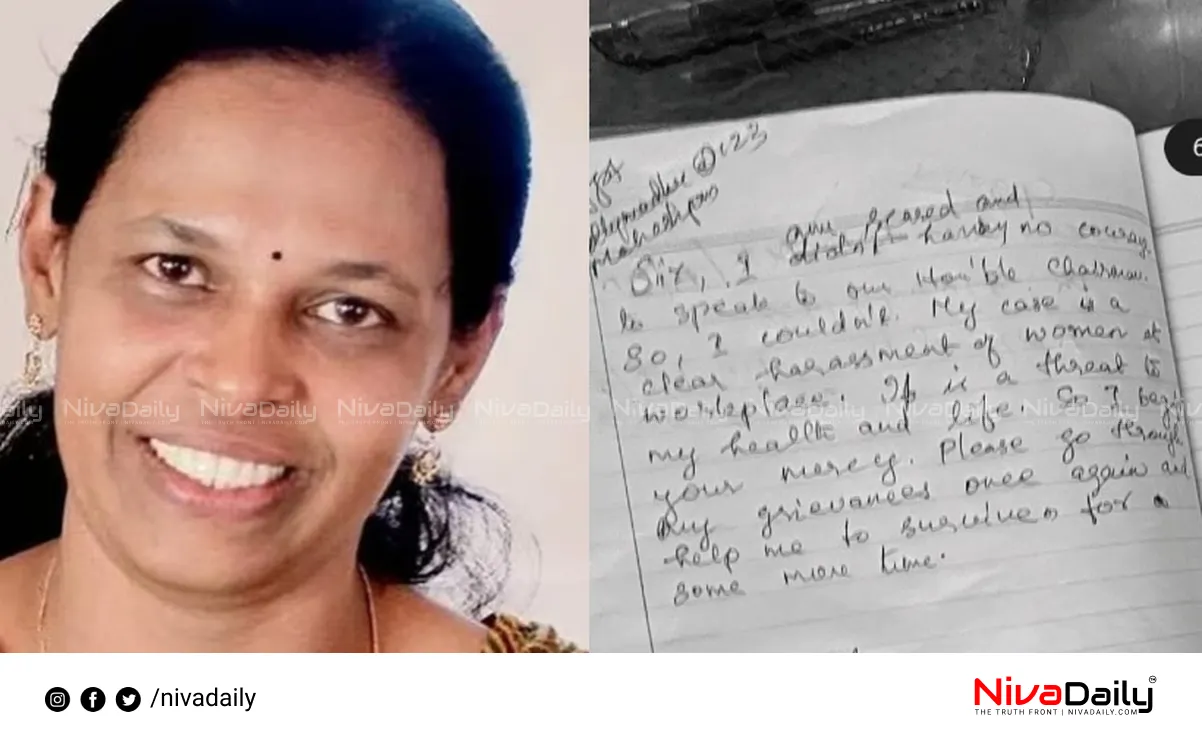 I am scared and
Sir, I didn't having no courage
to speak to our Hon'ble Chairman.
So, I couldn't. My case is a
clear harassment of women at
workplace. It is a threat to
my health and life. So I beg
your mercy. Please go through
my grievances once again and
help me to survive for a
some more time.
6
NivaDaily NivaDaily NivaDaily NivaDaily NivaDaily NivaDaily NivaDaily NivaDaily
/nivadaily
NivaDaily
THE TRUTH FRONT | NIVADAILY.COM